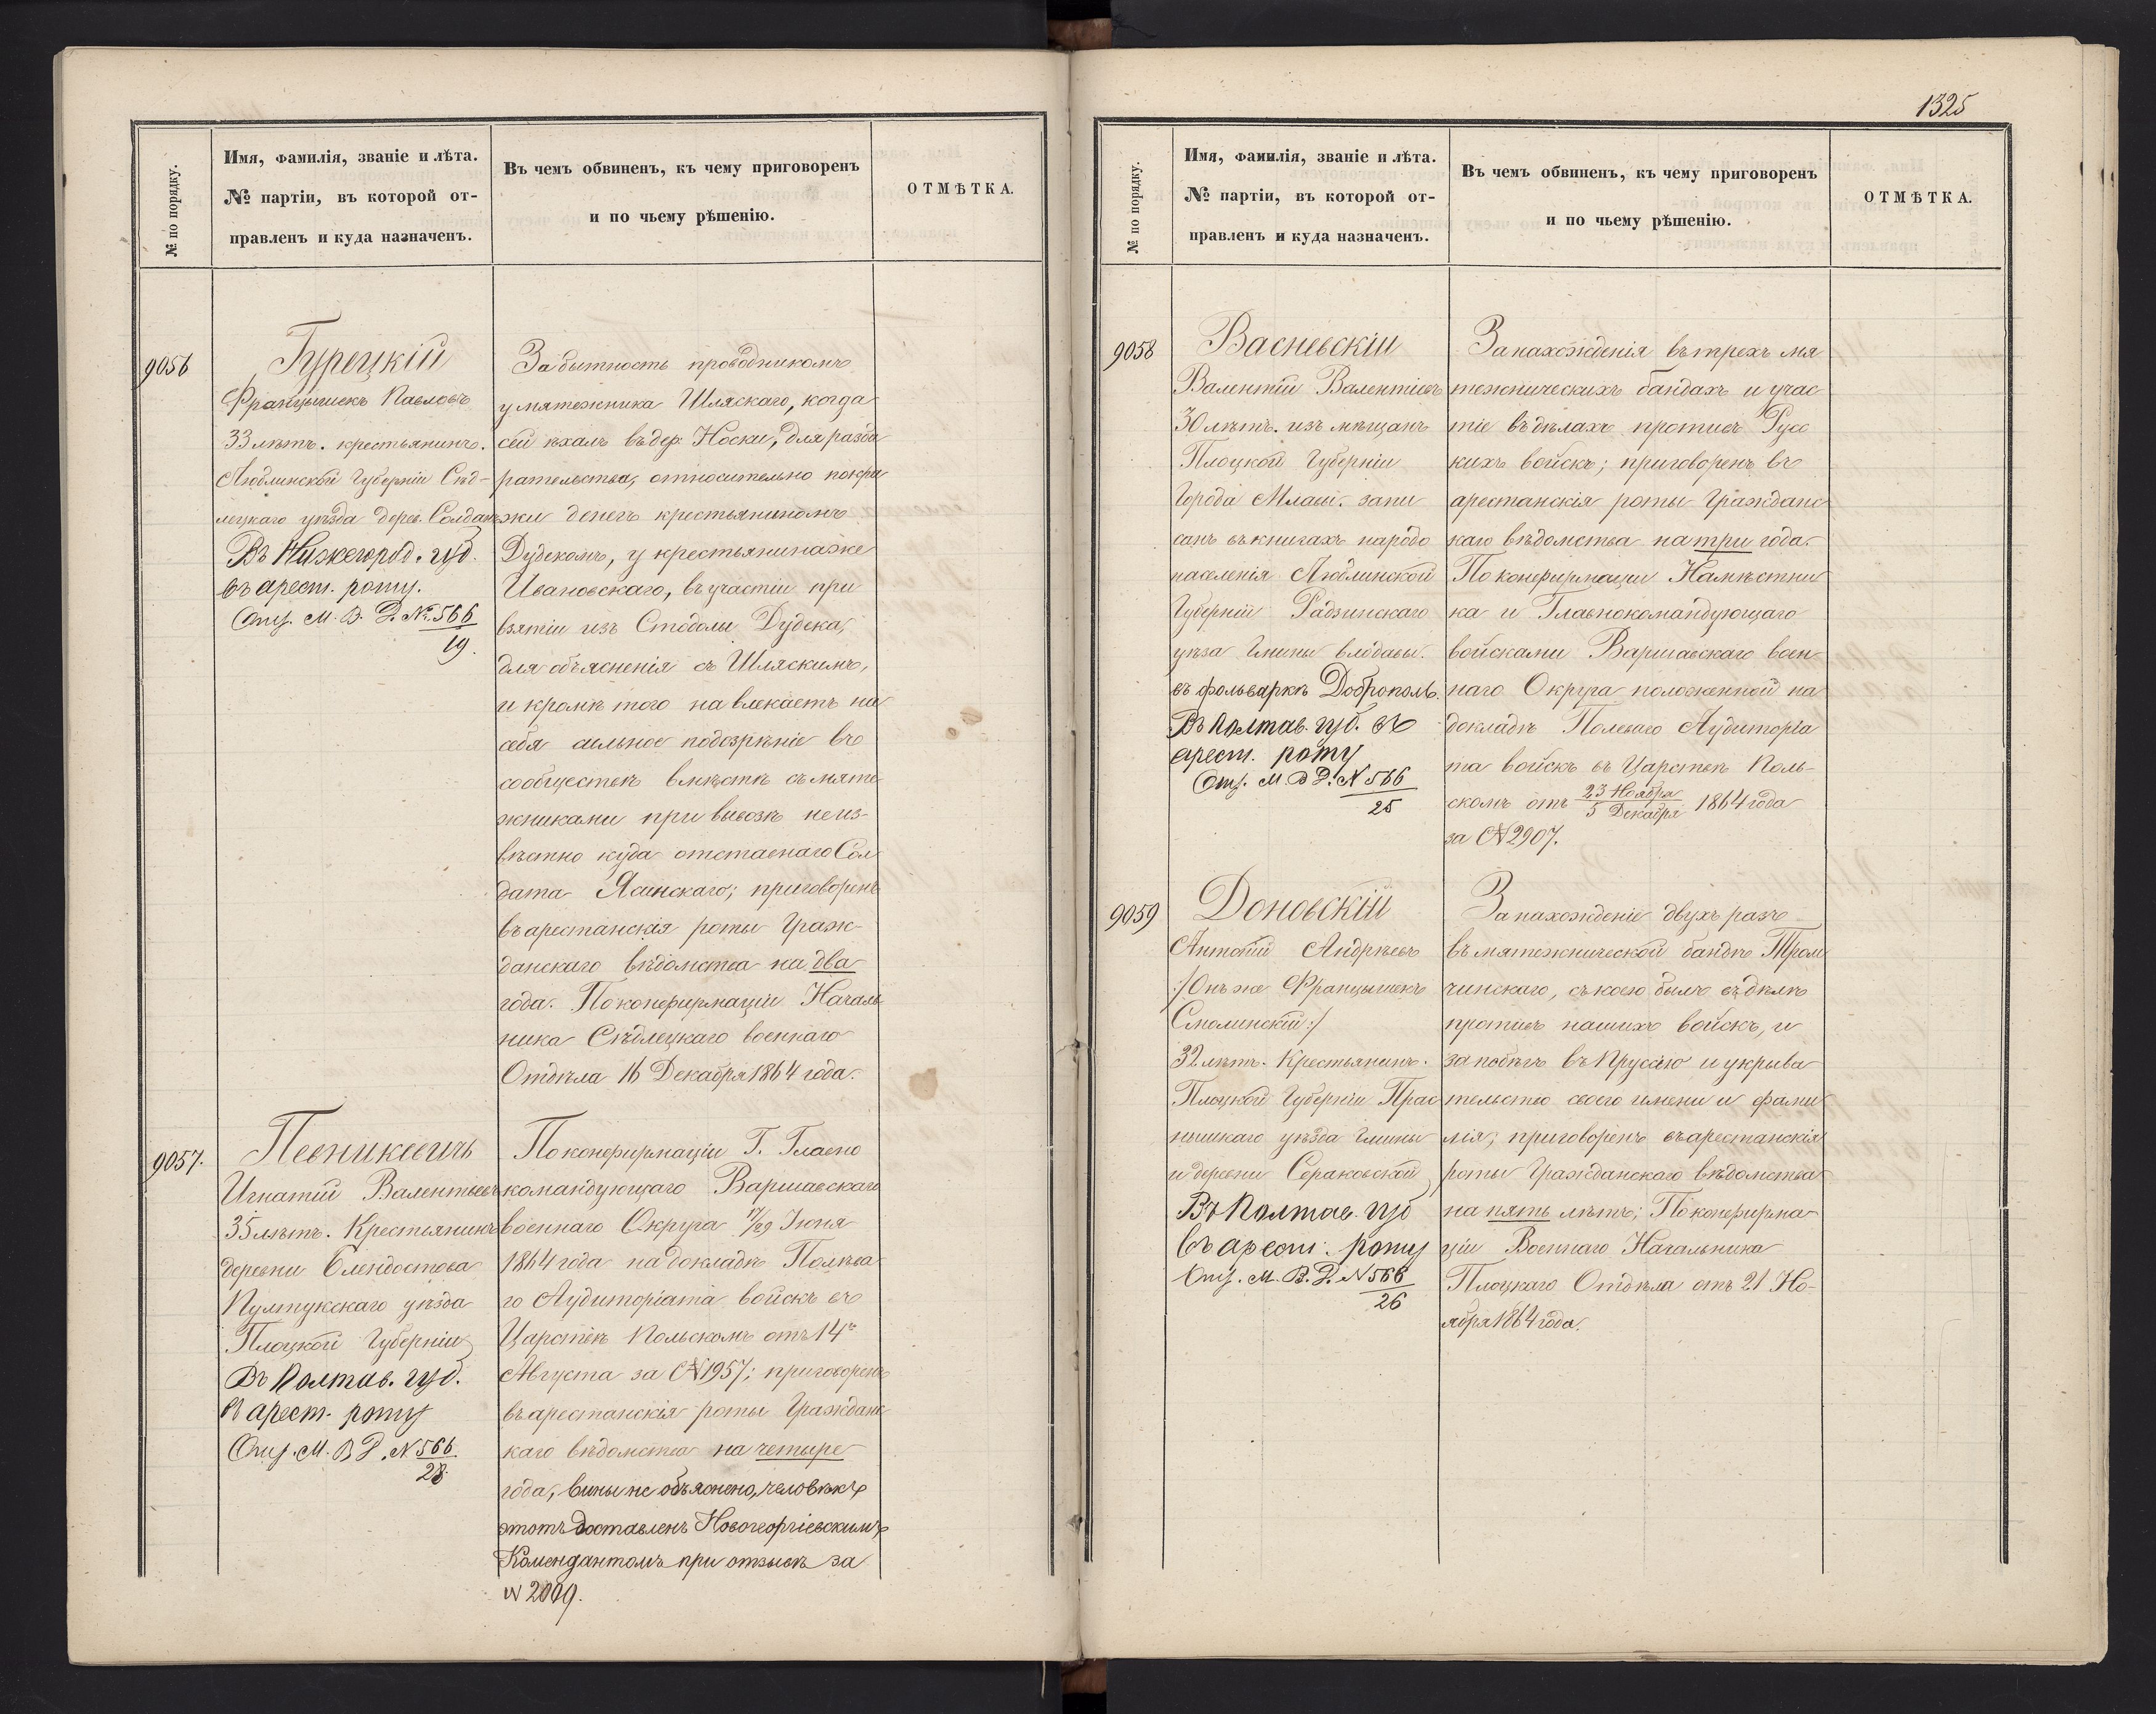 № по порядку.
Имя, фамилія, званіе и лѣта.
№ партіи, въ которой от-
правленъ и куда назначенъ.
Въ чемъ обвиненъ, къ чему приговоренъ
и по чьему рѣшенію.
ОТМѢТКА.
9056
Гурецкій
Францышекъ Павловъ
33 лѣтъ. крестьянинъ.
Люблинской Губерніи Сѣд-
лецкаго уѣзда дерев. Солданъ
Въ Нижегород. губ.
въ арест. роту.
Отз. М. В. Д. № 566
19.
За бытность проводникомъ
у мятежника Шляскаго, когда
сей ѣхалъ въ дер. Носки, для разби
рательства, относительно покра
жи денегъ крестьяниномъ
Дудекомъ, у крестьянина же
Ивановскаго, въ участіи при
взятіи изъ Стодолы Дудека,
для объясненія съ Шляскимъ,
и кромѣ того навлекаетъ на
себя сильное подозрѣніе въ
сообществѣ вмѣстѣ съ мяте
жниками при вывозѣ неиз-
вѣстно куда отставнаго Сол
дата Ясинскаго; приговоренъ
въ арестанскія роты Граж-
данскаго вѣдомства на два
года. По конфирмаціи Началь
ника Сѣдлецкаго военнаго
Отдѣла 16 Декабря 1864 года.
9057.
Певникевичъ
Игнатій Валентьевъ
35 лѣтъ. Крестьянинъ
деревни Олендостова
Пултукскаго уѣзда
Плоцкой Губерніи
Въ Полтав. губ.
въ арест. роту
Отз. М. В Д. № 566
28.
По конфирмаціи Г. Главно
командующаго Варшавскаго
военнаго Округа 17/29 Іюня
1864 года на докладѣ Полева
го Аудиторіата войскъ въ
Царствѣ Польскомъ отъ 14го
Августа за № 1957; приговоренъ
въ арестанскія роты Гражданс
каго вѣдомства на четыре
года, вины не объяснено, человѣкъ
этотъ доставленъ Новогеоргіевскимъ
Комендантомъ при отзывѣ за
№ 2009.
1325
№ по порядку.
Имя, фамилія, званіе и лѣта.
№ партіи, въ которой от-
правленъ и куда назначенъ.
Въ чемъ обвиненъ, къ чему приговоренъ
и по чьему рѣшенію.
ОТМѢТКА.
9058
Васневскій
Валентій Валентіевъ
30 лѣтъ. изъ мѣщанъ
Плоцкой Губерніи
Города Млавы. запи
санъ въ книгахъ народо
населенія Люблинской
Губерніи Радзинскаго
уѣза Гмины Влодавы.
въ фольваркѣ Доброполь.
Въ Полтав. губ. въ
арест. роту
Отз. М. В Д. № 566
25
За нахожденія въ трехъ мя
тежническихъ бандахъ и учас
тіе въ дѣлахъ противъ Русс
кихъ войскъ; приговоренъ въ
арестанскія роты Гражданс
каго вѣдомства на три года.
По конфирмаціи Намѣстни
ка и Главнокомандующаго
войсками Варшавскаго воен-
наго Округа положенной на
докладѣ Полеваго Аудиторіа
та войскъ въ Царствѣ Поль-
скомъ отъ 23 Ноября / 5 Декабря 1864 года
за № 2907.
9059
Доновскій
Антоній Андрѣевъ
/:Онъ же Францышекъ
Смолинскій:/
32 лѣтъ. Крестьянинъ.
Плоцкой Губерніи Прас
нышкаго уѣзда Гмины
и деревни Сераковской
Въ Полтав. губ
въ арест. роту
Отз. М. В. Д. № 566
26
За нахожденіе двухъ разъ
въ мятежнической бандѣ Тром
чинскаго, съ коею былъ въ дѣлѣ
противъ нашихъ войскъ, и
за побѣгъ въ Пруссію и укрыва
тельство своего имени и фами
лія; приговоренъ въ арестанскія
роты Гражданскаго вѣдомства
на пять лѣтъ; По конфирма
ціи Военнаго Начальника
Плоцкаго Отдѣла отъ 21 Но-
ября 1864 года.